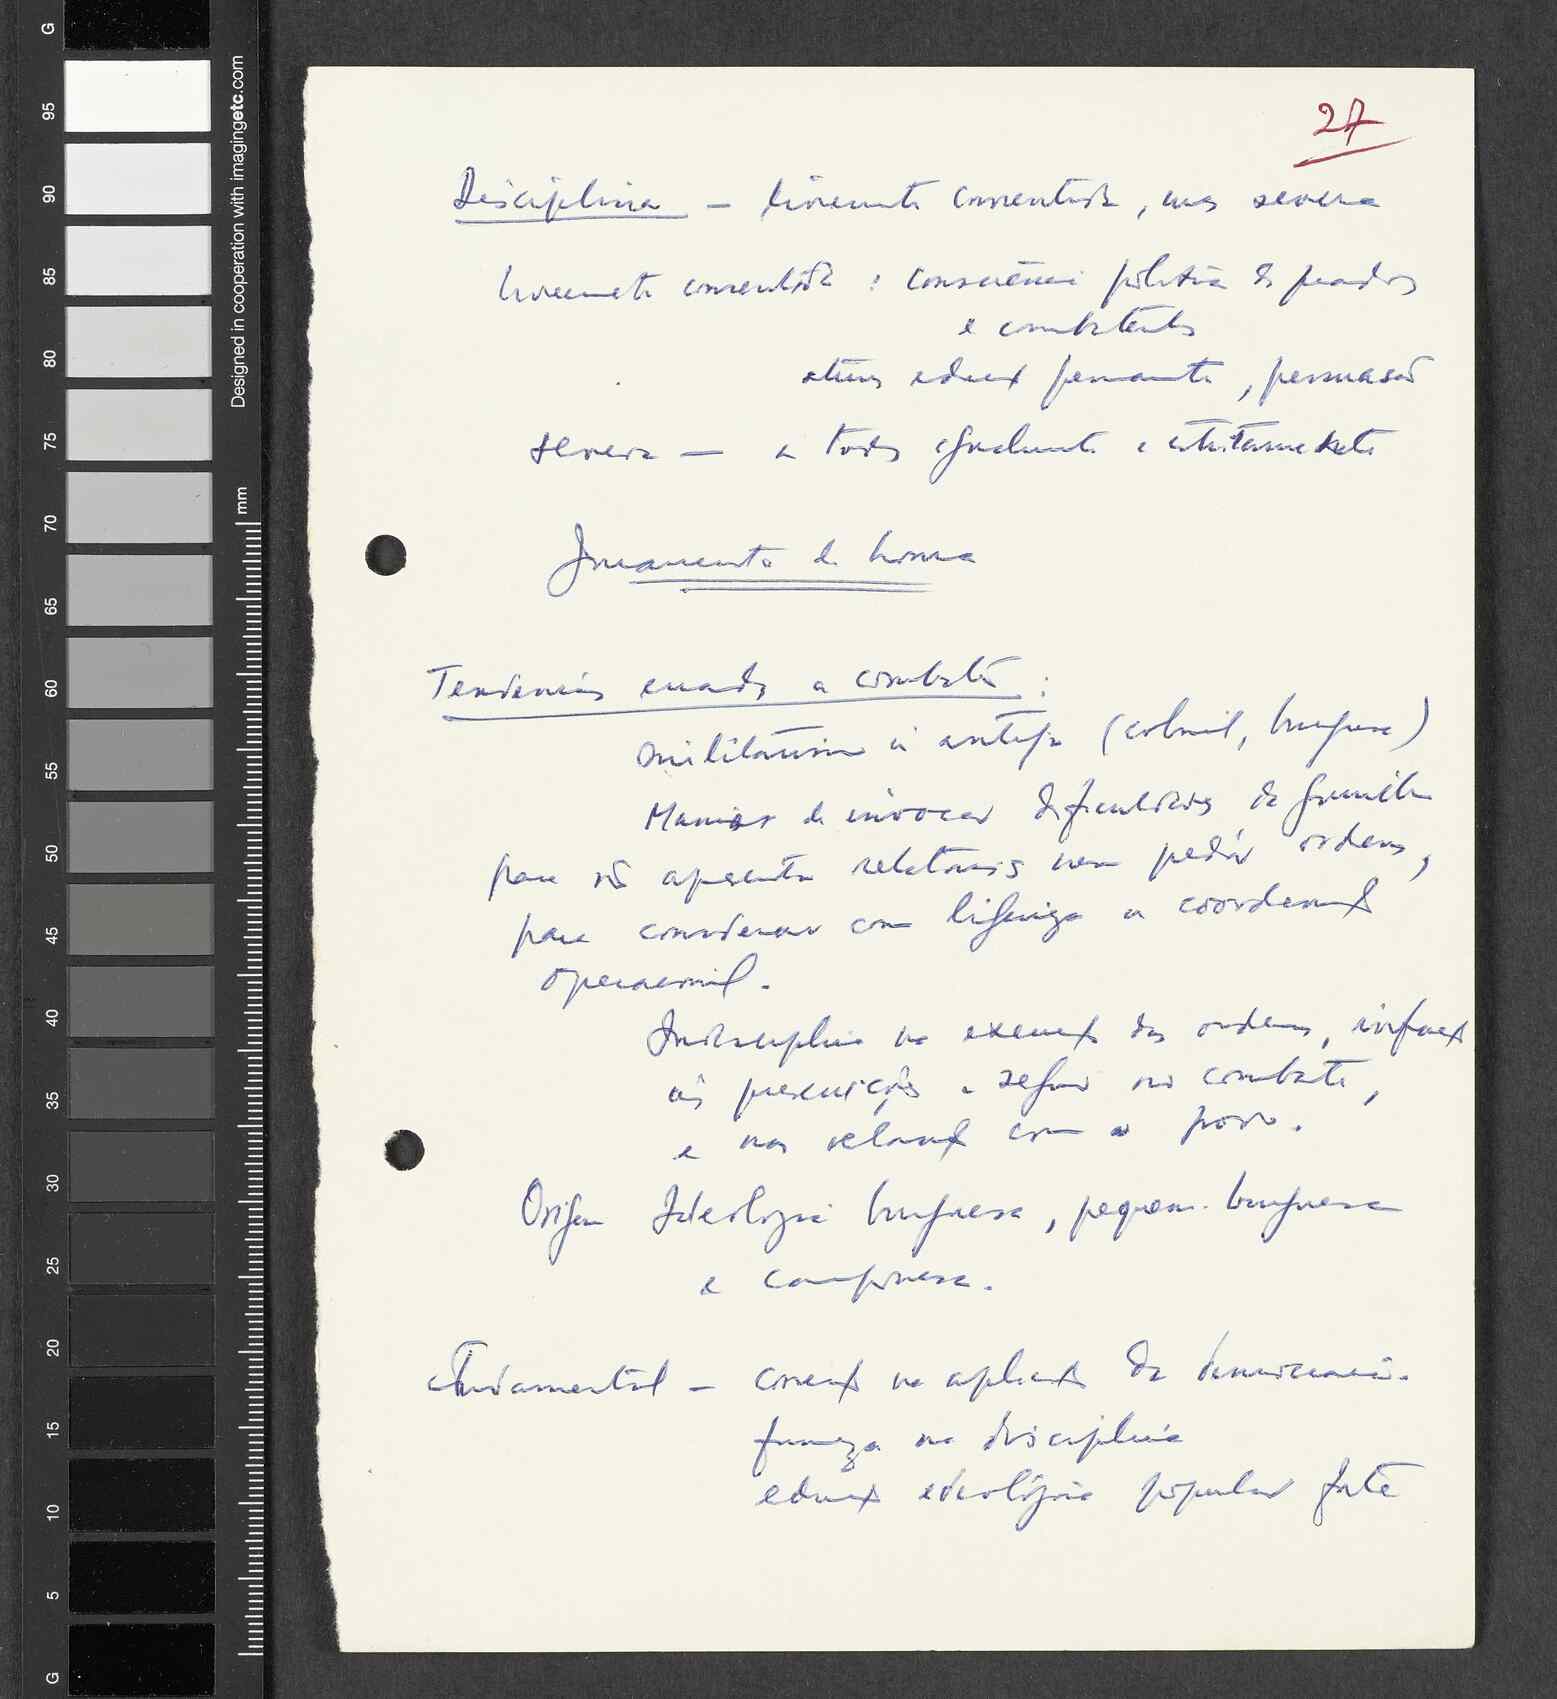 27
Disciplina — livremente consentida, mas severa
livremente consentida : consciência política dos quadros
e combatentes
permanente, persuasão
severa — a todos igualmente e estritamente
Juramento de honra
Tendências erradas a combater :
militarismo à antiga (colonial, burguesa)
Manias de invocar dificuldades da guerrilha
para não apresentar relatórios nem pedir ordens,
para considerar com ligeireza a coordenação
operacional.
Indisciplina na execução das ordens,
às prescrições a seguir no combate,
e nas relações com o povo.
Origem Ideologia burguesa, pequeno-burguesa
e camponesa.
Fundamental — correção na aplicação da democracia.
firmeza na disciplina
educação ideológica popular forte
G
95
90
85
80
75
70
65
60
55
50
45
40
35
30
25
20
15
10
5
G
Designed in cooperation with imagingetc.com
mm